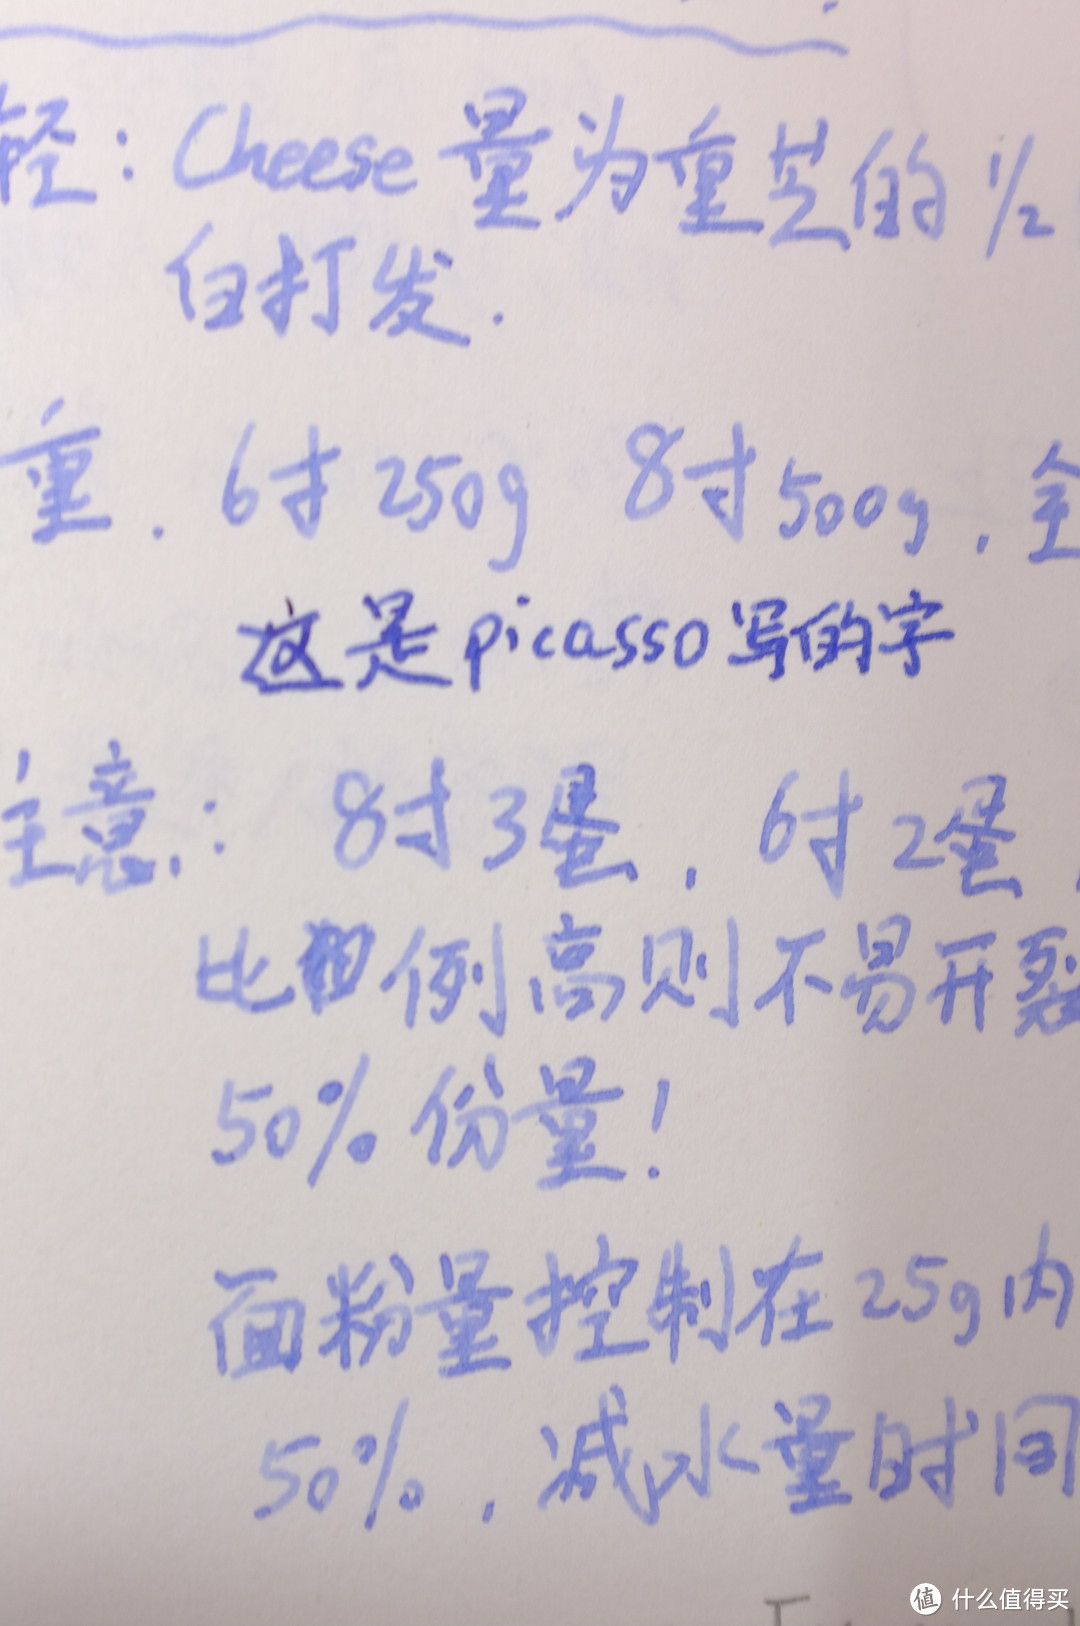 轻：Cheese量为重芝的1/2
白打发.
重. 6寸250g 8寸500g，全
这是picasso写的字
注意：8寸3蛋，6寸2蛋，
比例高则不易开裂
50%份量！
面粉量控制在25g内
50%，减水量时同
值 什么值得买